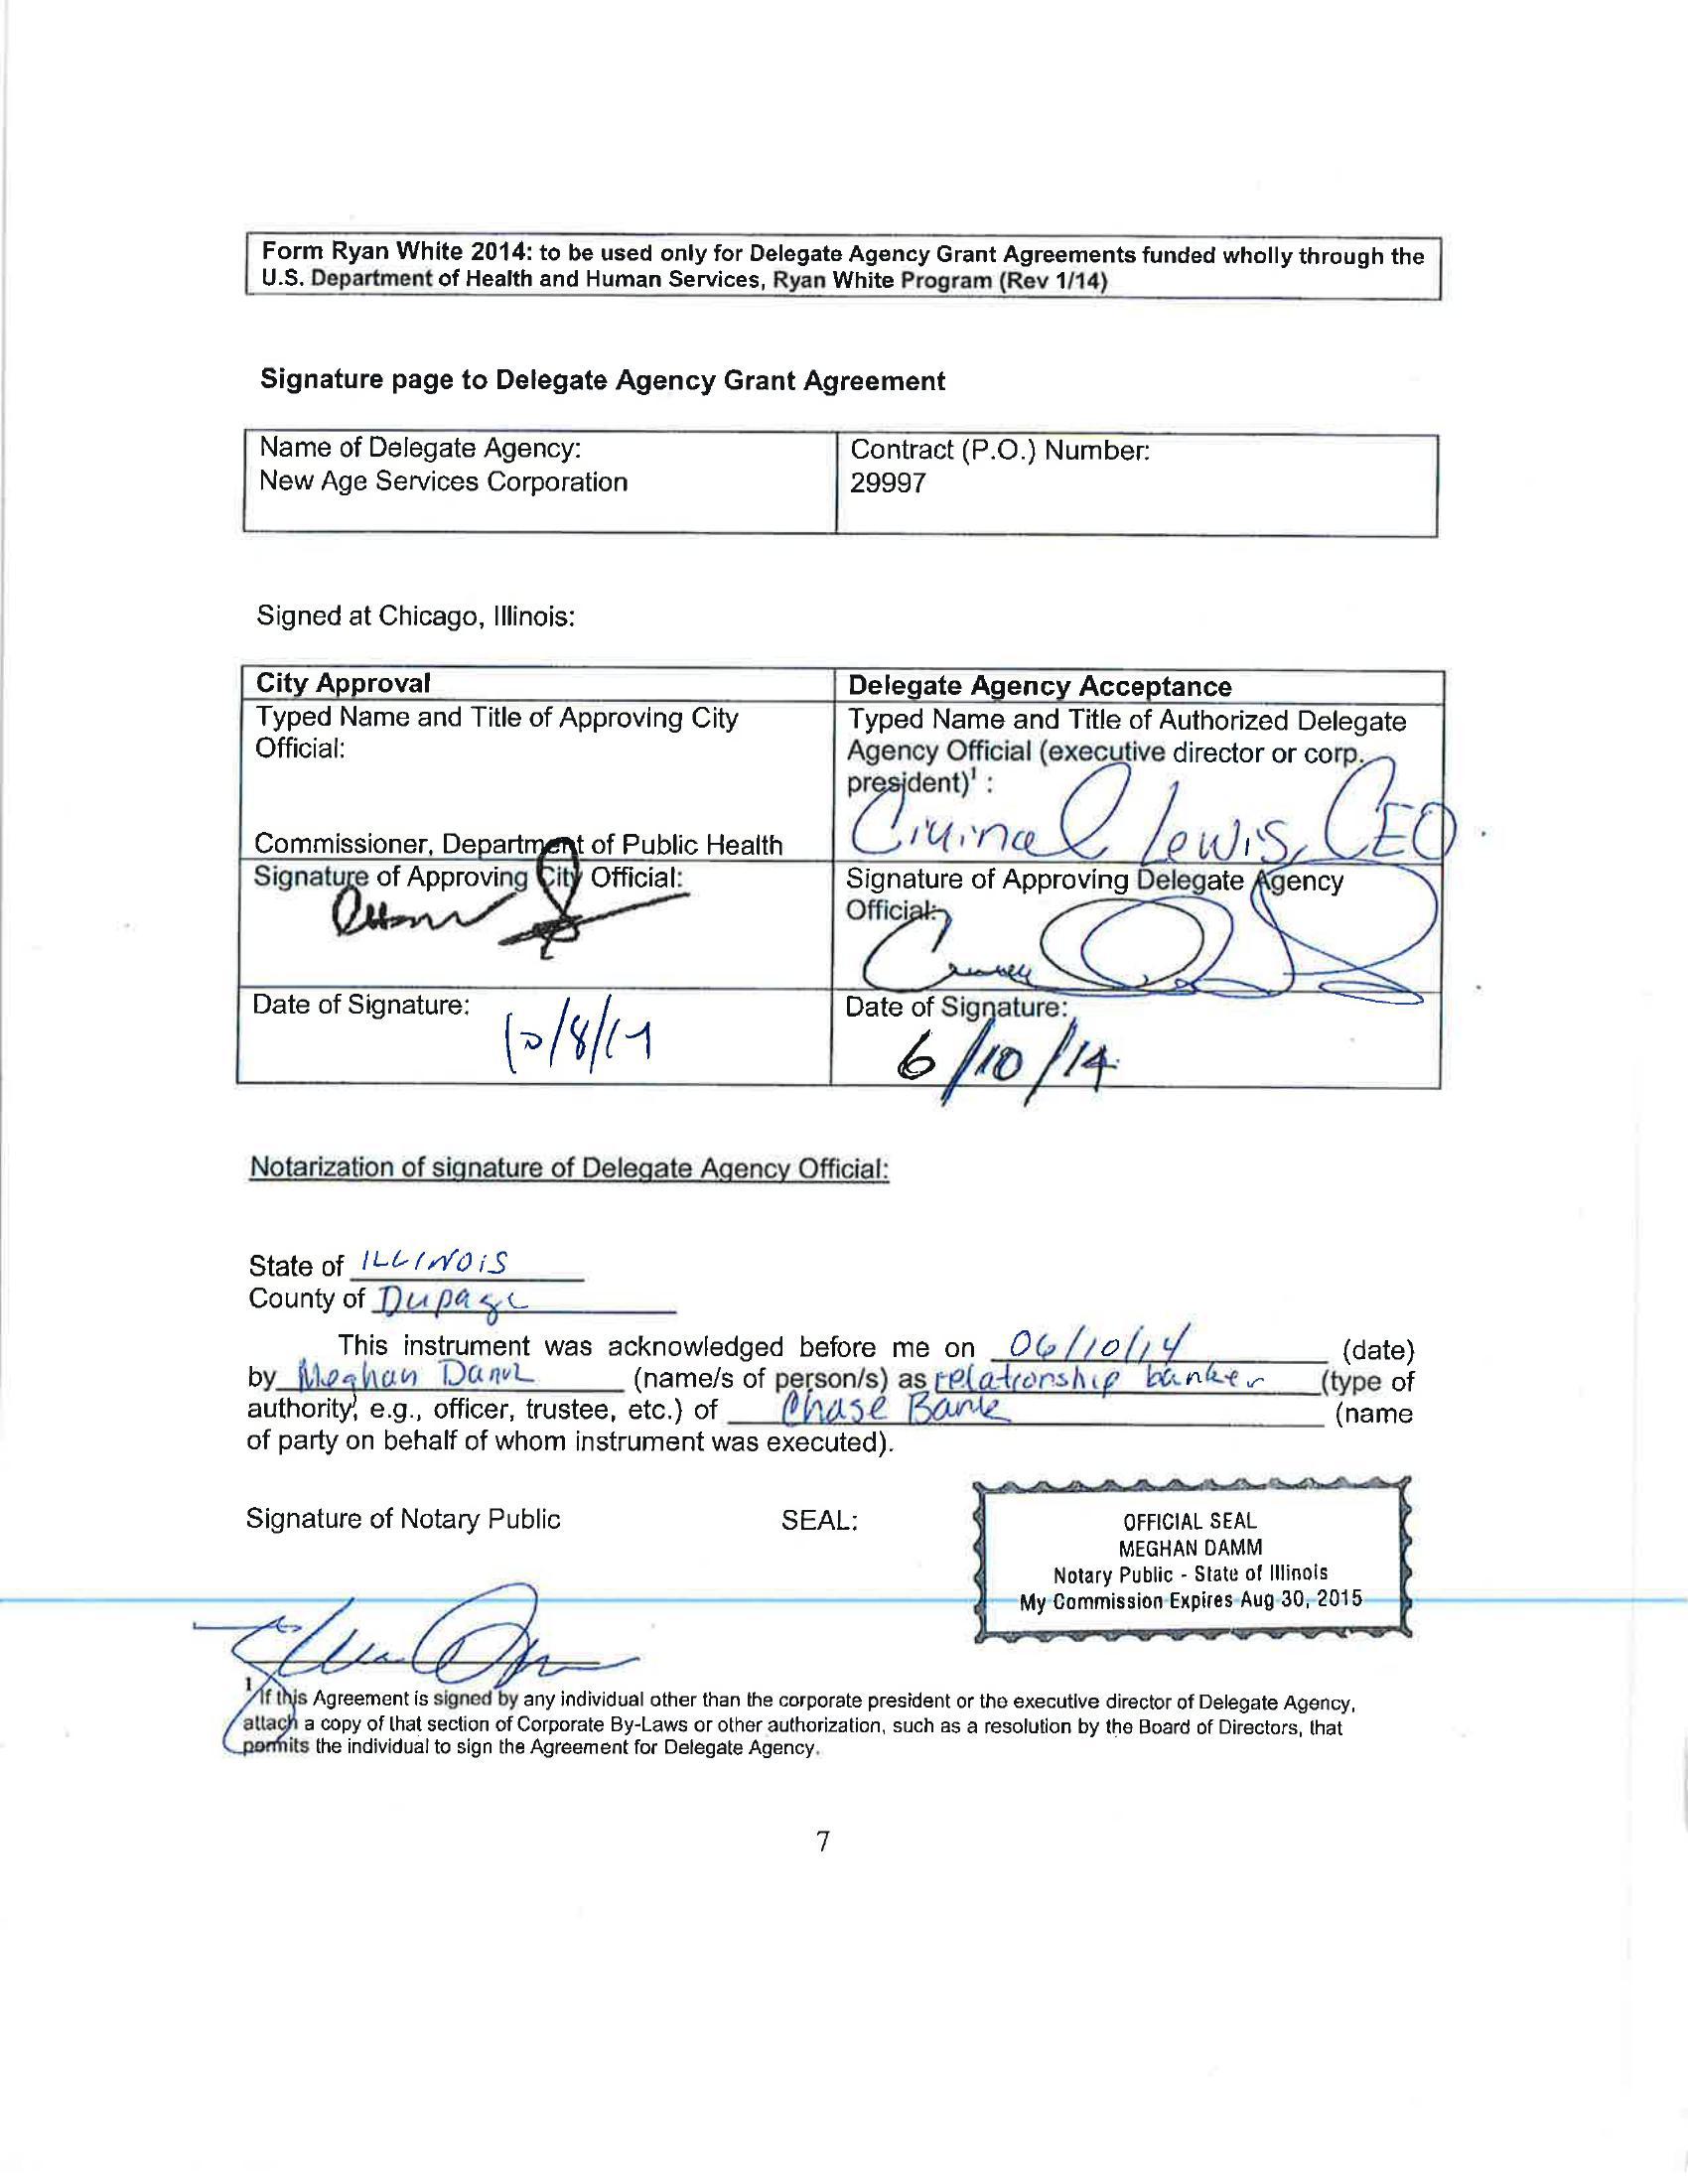 Form Ryan White 2014: to be used only for Delegate Agency Grant Agreements funded wholly through the
U.S. Department of Health and Human Services, Ryan White Program (Rev 1/14)
Signature page to Delegate Agency Grant Agreement
Name of Delegate Agency:
New Age Services Corporation
Contract (P.O.) Number:
29997
Signed at Chicago, Illinois:
City Approval
Typed Name and Title of Approving City
Official:
Commissioner, Department of Public Health
Signature of Approving City Official:
Date of Signature:
10/8/14
Delegate Agency Acceptance
Typed Name and Title of Authorized Delegate
Agency Official (executive director or corp.
president)¹ :
Lewis, CEO
Signature of Approving Delegate Agency
Official:
Date of Signature:
6/10/14
Notarization of signature of Delegate Agency Official:
State of ILLINOIS
County of Dupage
This instrument was acknowledged before me on 06/10/14 (date)
by Meghan Damm (name/s of person/s) as relationship banker (type of
authority, e.g., officer, trustee, etc.) of Chase Bank (name
of party on behalf of whom instrument was executed).
Signature of Notary Public
SEAL:
OFFICIAL SEAL
MEGHAN DAMM
Notary Public - State of Illinois
My Commission Expires Aug 30, 2015
1 If this Agreement is signed by any individual other than the corporate president or the executive director of Delegate Agency,
attach a copy of that section of Corporate By-Laws or other authorization, such as a resolution by the Board of Directors, that
permits the individual to sign the Agreement for Delegate Agency.
7